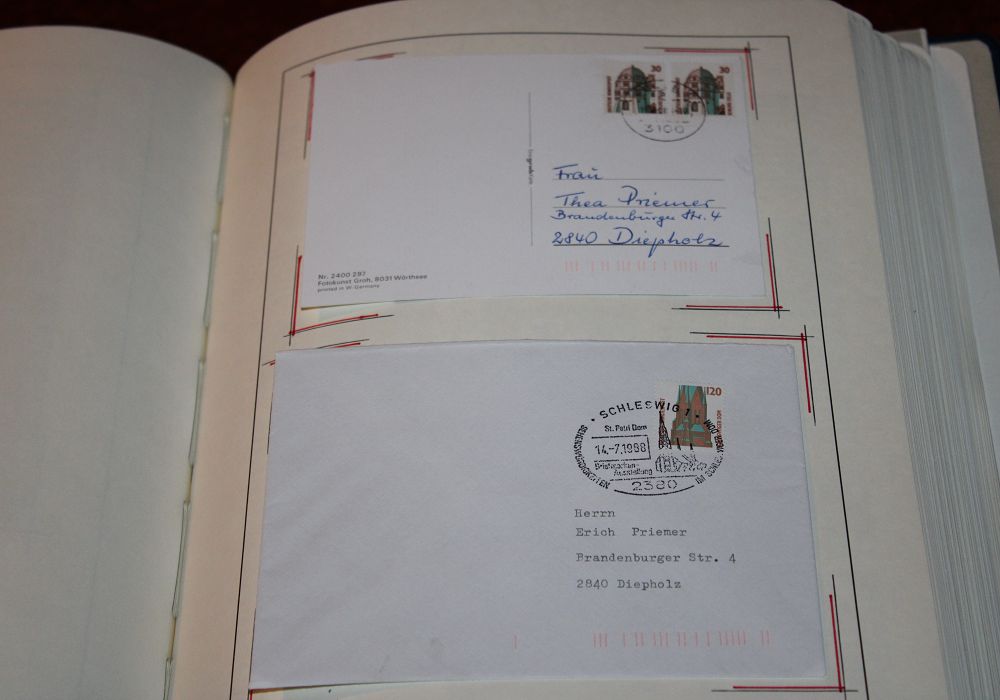 30
30
3100
Frau
Thea Priemer
Brandenburger Str. 4
2840 Diepholz
Nr. 2400 297
Fotokunst Groh, 8031 Wörthsee
printed in W-Germany
120
SCHLESWIG 1
St. Petri Dom
14.-7.1988
Briefmarken-
Ausstellung
SEHENSWÜRDIGKEITEN
2380
Herrn
Erich Priemer
Brandenburger Str. 4
2840 Diepholz